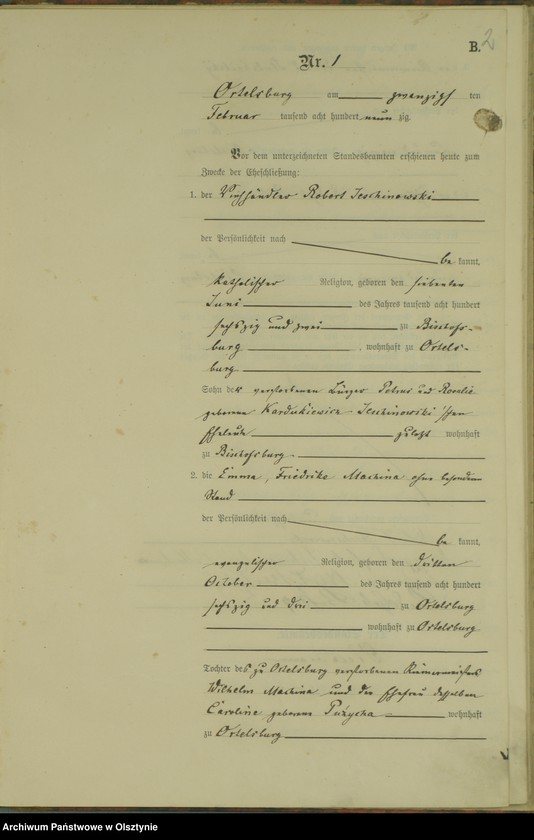 B. 2
Nr. 1
Ortelsburg am zwanzigsten ten
Februar tausend acht hundert neun zig.
Vor dem unterzeichneten Standesbeamten erschienen heute zum
Zwecke der Eheschließung:
1. der Viehhändler Robert Jeschinowski
der Persönlichkeit nach
be kannt,
katholischer Religion, geboren den siebenten
Juni des Jahres tausend acht hundert
sechszig und zwei zu Bischofs-
burg, wohnhaft zu Ortels-
burg
Sohn der verstorbenen Bürger Petrus und Rosalie
geborene Jeschinowski'schen
Eheleute zuletzt wohnhaft
zu Bischofsburg
2. die Emma, Friedrike Machina ohne besonderen
Stand
der Persönlichkeit nach
be kannt,
evangelischer Religion, geboren den dritten
October des Jahres tausend acht hundert
sechszig und drei zu Ortelsburg
wohnhaft zu Ortelsburg
Tochter des zu Ortelsburg verstorbenen Riemermeisters
Wilhelm Machina und der Ehefrau desselben
Caroline geborene wohnhaft
zu Ortelsburg
Archiwum Państwowe w Olsztynie